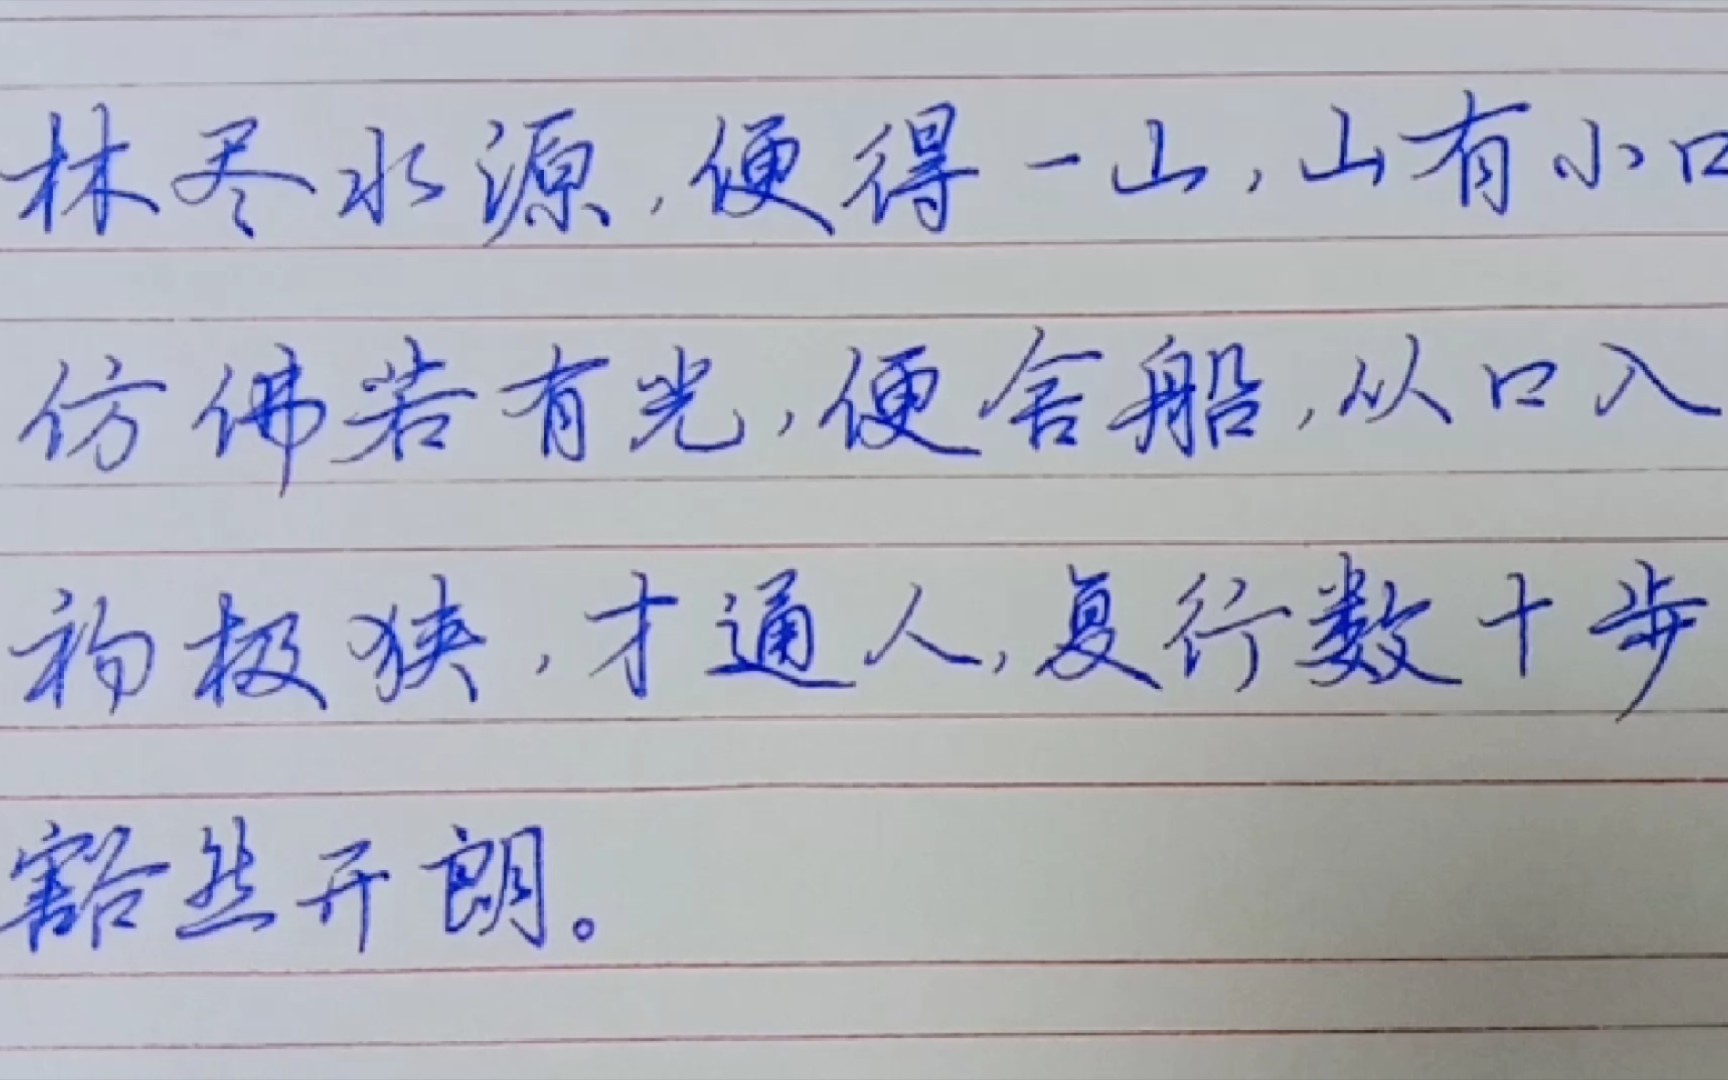 林尽水源，便得一山，山有小口
仿佛若有光，便舍船，从口入
初极狭，才通人，复行数十步
豁然开朗。